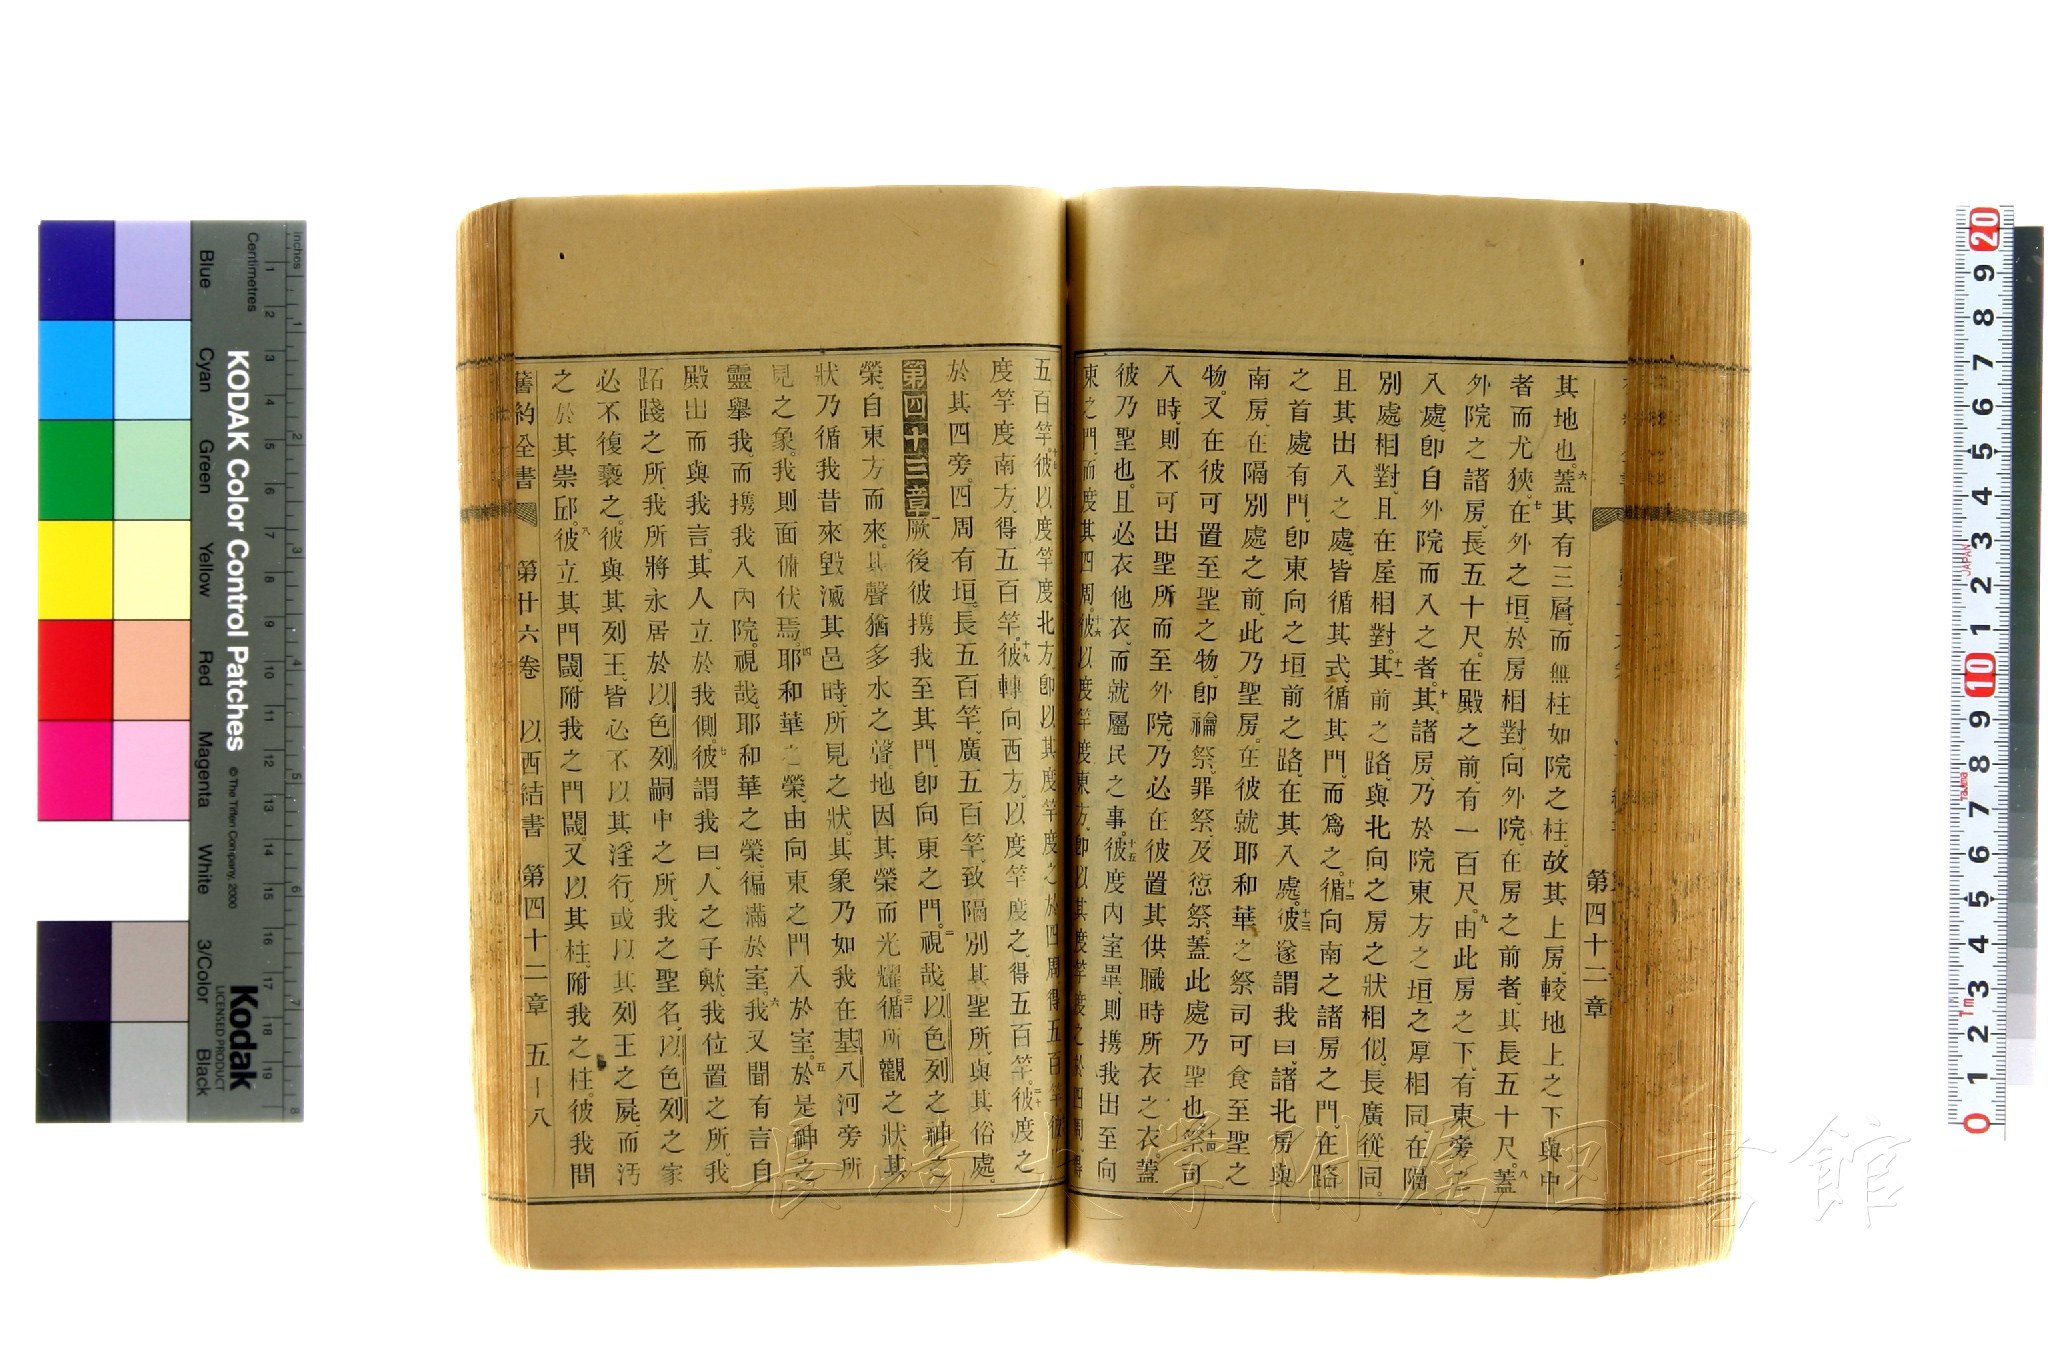 其地也。六蓋其有三層、而無柱如院之柱、故其上房、較地上之下與中
者而尤狹。七在外之垣、於房相對、向外院、在房之前者、其長五十尺。八蓋
外院之諸房、長五十尺。在殿之前、有一百尺。九由此房之下、有東旁之
入處、卽自外院而入之者。十其諸房、乃於院東方之垣之厚相同在隔
別處相對、且在屋相對。十一其前之路、與北向之房之狀相似、長廣從同。
且其出入之處、皆循其式、循其門、而爲之。十二循向南之諸房之門、在路
之首處有門、卽東向之垣前之路、在其入處。十三彼遂謂我曰、諸北房與
南房、在隔別處之前、此乃聖房。在彼就耶和華之祭司可食至聖之
物。又在彼可置至聖之物、卽禴祭、罪祭、及愆祭。蓋此處乃聖也。十四祭司
入時、則不可出聖所而至外院、乃必在彼置其供職時所衣之衣。蓋
彼乃聖也。且必衣他衣、而就屬民之事。十五彼度內室畢、則攜我出至向
東之門、而度其四周。十六彼以度竿度東方、卽以其度竿度之於四周、得
五百竿。十七彼以度竿度北方、卽以其度竿度之於四周得五百竿彼
度竿度南方、得五百竿。十九彼轉向西方、以度竿度之、得五百竿。二十彼度之
於其四旁。四周有垣。長五百竿、廣五百竿、致隔別其聖所、與其俗處。
第四十三章一厥後彼攜我至其門、卽向東之門。二視哉、以色列之神之
榮、自東方而來。其聲猶多水之聲、地因其榮而光耀。三循所觀之狀、其
狀乃循我昔來毀滅其邑時、所見之狀。其象乃如我在基八河旁所
見之象。我則面俯伏焉。四耶和華之榮、由向東之門入於室。五於是神之
靈舉我、而攜我入內院。視哉、耶和華之榮、徧滿於室。六我又聞有言自
殿出而與我言。其人立於我側。七彼謂我曰、人之子歟、我位置之所、我
跖踐之所、我所將永居於以色列嗣中之所、我之聖名、以色列之家
必不復褻之。彼與其列王、皆必不以其淫行、或以其列王之屍、而汚
之於其崇邱。八彼立其門閾、附我之門閾、又以其柱、附我之柱。彼我間
舊約全書 第廿六卷 以西結書 第四十二章 五一八
第四十二章
KODAK Color Control Patches
© The Tiffen Company, 2000
Kodak
LICENSED PRODUCT
inches
Centimetres
Blue
Cyan
Green
Yellow
Red
Magenta
White
3/Color
Black
JAPAN
Tajima
長崎大学附属図書館